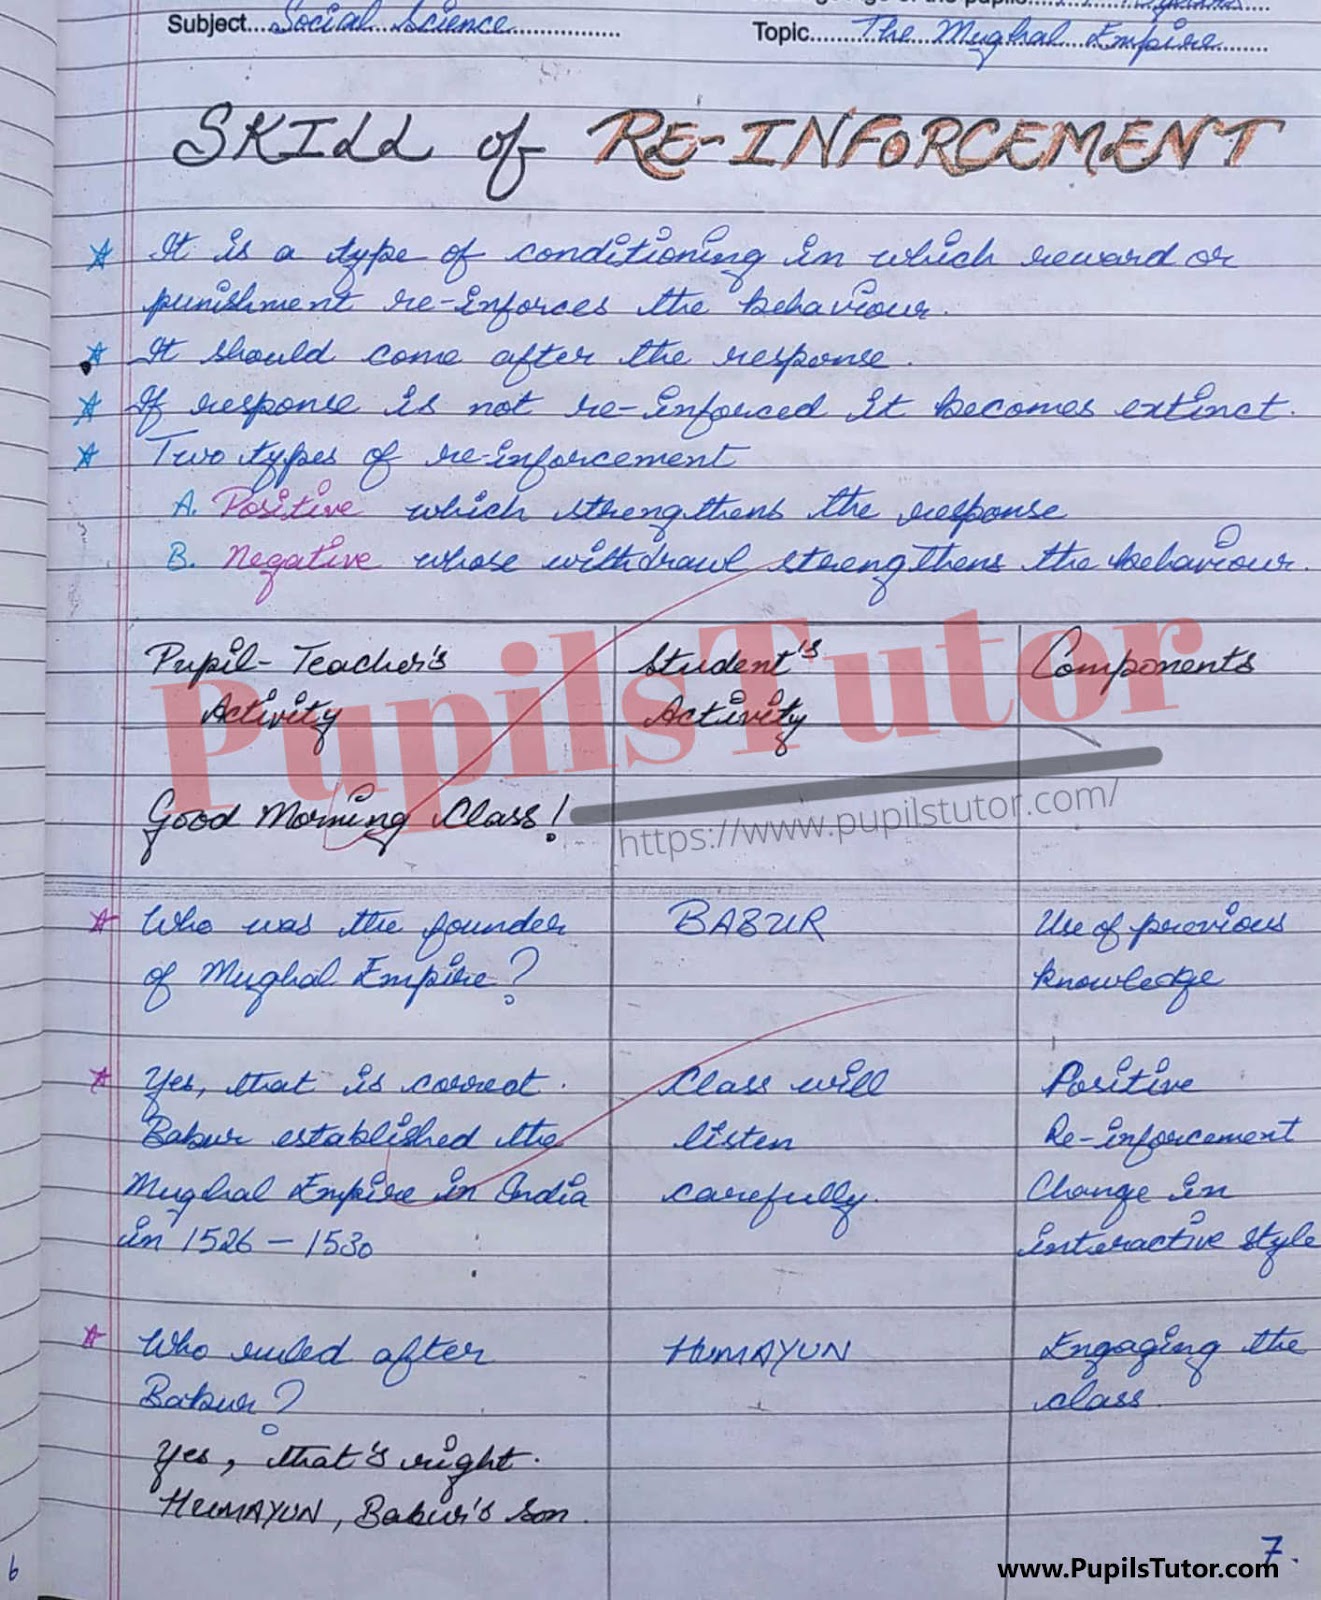 Subject....Social Science................
Topic........The Mughal Empire........
SKILL of RE-INFORCEMENT
It is a type of conditioning in which reward or
punishment re-inforces the behaviour.
It should come after the response.
If response is not re-inforced it becomes extinct.
Two types of re-inforcement
A. Positive which strengthens the response
B. Negative whose withdrawl strengthens the behaviour.
Pupil-Teacher's Student's Components
Activity Activity
PupilsTutor
Good Morning Class!
https://www.pupilstutor.com/
Who was the founder BABUR Use of previous
of Mughal Empire? knowledge
Yes, that is correct. Class will Positive
Babur established the listen Re-inforcement
Mughal Empire in India carefully. Change in
in 1526 – 1530 interactive style
Who ruled after HUMAYUN Engaging the
Babur? class.
Yes, that's right.
HUMAYUN, Babur's son.
6
7.
www.PupilsTutor.com